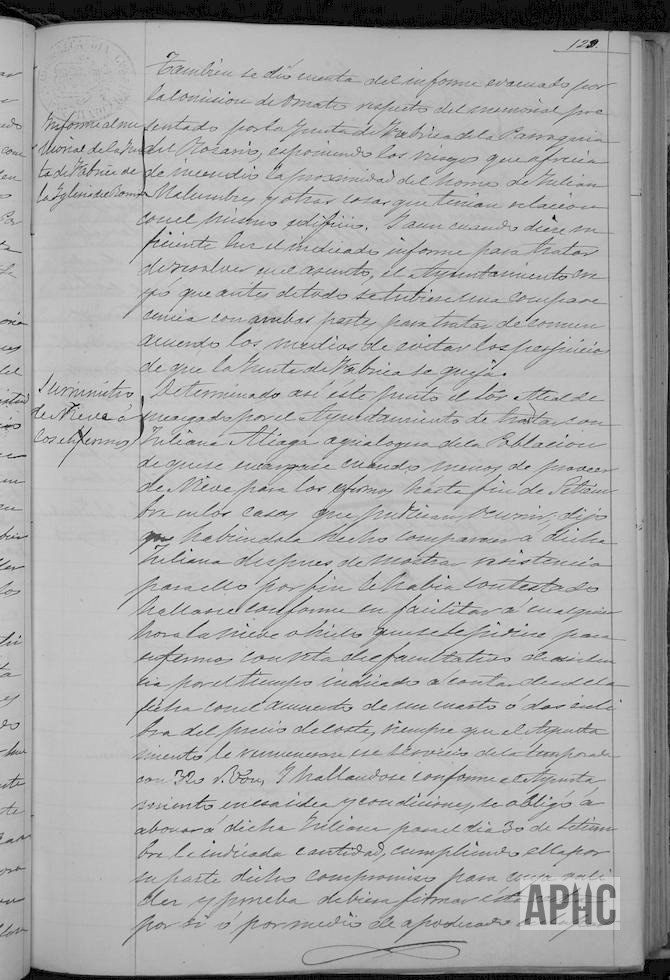 129.
Tambien se dió cuenta del informe evacuado por
la Comision de Ornato respecto del memorial pre
sentado por la Junta de Fábrica de la Parroquia
del Rosario, esponiendo los riesgos que ofrecia
de incendio la proximidad del horno de Julian
y otras cosas que tenian relacion
con el mismo edificio. Y aun cuando diese su
ficiente luz el indicado informe para tratar
de resolver en el asunto, el Ayuntamiento cre
yó que antes de todo se tubiese una compare
cencia con ambas partes para tratar de comun
acuerdo los medios de evitar los perjuicios
de que la Junta de Fábrica se queja.
Informe al me
morial de la Jun
ta de Fábrica de
la Iglesia de
Determinado así este punto el Sor. Alcalde
encargado por el Ayuntamiento de tratar con
Juliana Aliaga de la Poblacion
de que se encargase cuando menos de proveer
de Nieve para los enfermos hasta fin de Setiem
bre en los casos que pudieran ocurrir, dijo
que habiendola hecho comparecer á dicha
Juliana despues de mostrar resistencia
para ello por fin le habia contestado
hallarse conforme en facilitar á cualquier
hora la nieve o hielo que se le pidiese para
enfermos con de facultativo de asisten
cia por el tiempo indicado á contar desde la
fecha con el aumento de un cuarto ó dos en li
bra del precio de coste, siempre que el Ayunta
miento le remunerase ese servicio de la temporada
con 320 r. von. Y hallandose conforme el Ayunta
miento en esa idea y condiciones, se obligó á
abonar á dicha Juliana para el dia 30 de Setiem
bre la indicada cantidad, cumpliendo ella por
su parte dicho compromiso para cuya vali
dez y prueba debiera firmar
por sí ó por medio de apoderado
Suministro
de Nieve á
los enfermos
APHC